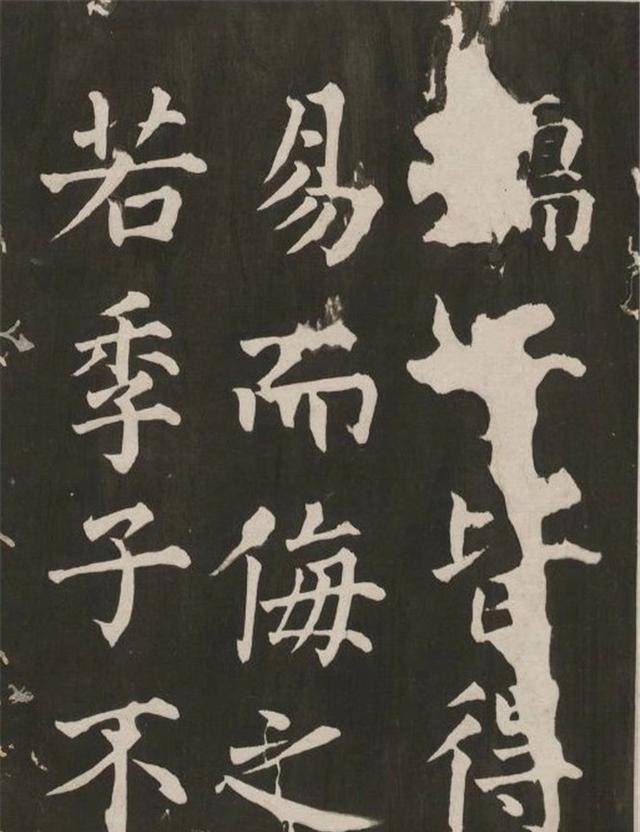 皆得
易而侮之
若季子不